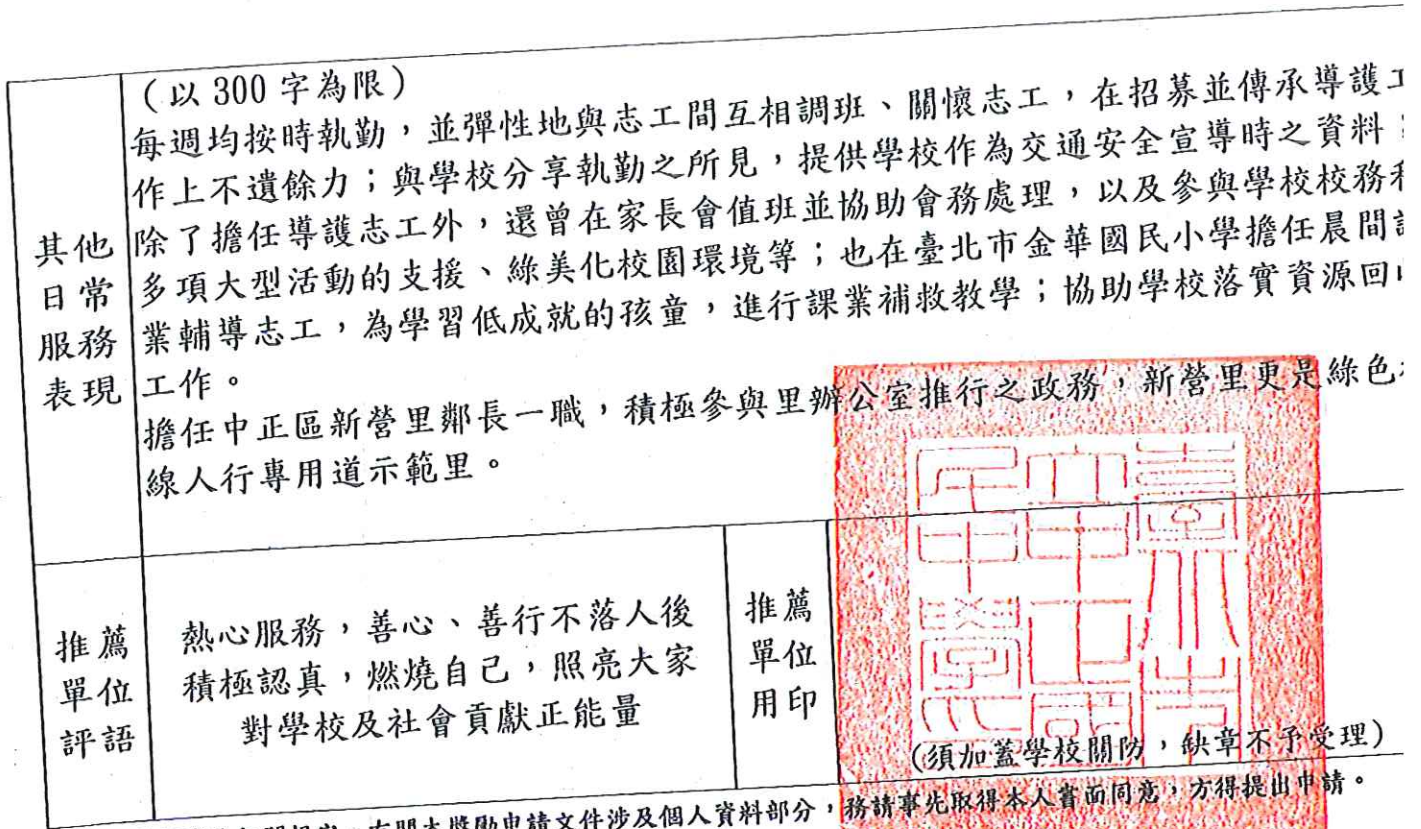 (以 300 字為限)
每週均按時執勤，並彈性地與志工間互相調班、關懷志工，在招募並傳承導護工
作上不遺餘力；與學校分享執勤之所見，提供學校作為交通安全宣導時之資料
除了擔任導護志工外，還曾在家長會值班並協助會務處理，以及參與學校校務
多項大型活動的支援、綠美化校園環境等；也在臺北市金華國民小學擔任晨間
業輔導志工，為學習低成就的孩童，進行課業補救教學；協助學校落實資源回
工作。
擔任中正區新營里鄰長一職，積極參與里辦公室推行之政務，新營里更是綠色
線人行專用道示範里。
其他
日常
服務
表現
推薦
單位
評語
熱心服務，善心、善行不落人後
積極認真，燃燒自己，照亮大家
對學校及社會貢獻正能量
推薦
單位
用印
(須加蓋學校關防，缺章不予受理)
有關本獎勵申請文件涉及個人資料部分，務請事先取得本人書面同意，方得提出申請。